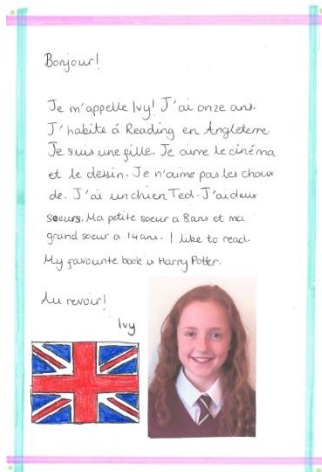 Bonjour!
Je m'appelle Ivy! J'ai onze ans.
J'habite á Reading en Angleterre.
Je suis une fille. Je aime le cinéma
et le dessin. Je n'aime pas les choux
de. J'ai un chien Ted. J'ai deux
soeurs. Ma petite soeur a 8 ans et ma
grand soeur a 14 ans. I like to read.
My favourite book is Harry Potter.
Au revoir!
Ivy